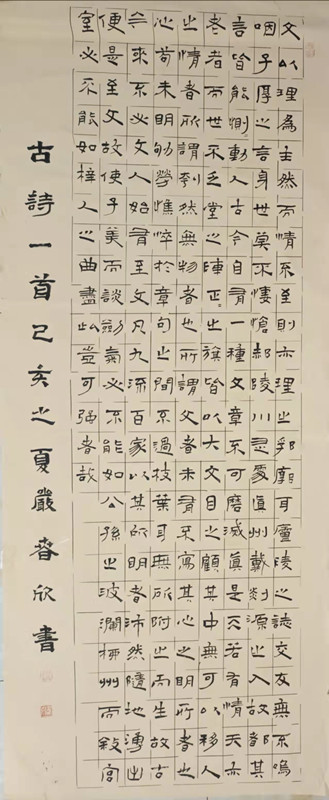 文以理為主然而情不至則亦理之郛廓耳廬陵之誌交友無不嗚
咽子厚之言身世莫不悽愴郝陵川之處真州戴剡源之入故都其
言皆能惻〻動人古今自有一種文章不可磨滅真是天若有情天亦
老者而世不乏堂〻之陣正〻之旗皆以大文目之顧其中無可以移人
之情者所謂刳然無物者也所謂文者未有不寫其心之明所者也
心苟未明劬勞憔悴於章句之間不過枝葉耳無所附之而生故古
今來不必文人始有至文凡九流百家以其所明者沛然隨地湧出
便是至文故使子美而談劍氣必不能如公孫之波瀾柳州而敘宮
室必不能如梓人之曲盡此豈可強者哉
古詩一首己亥之夏嚴春欣書